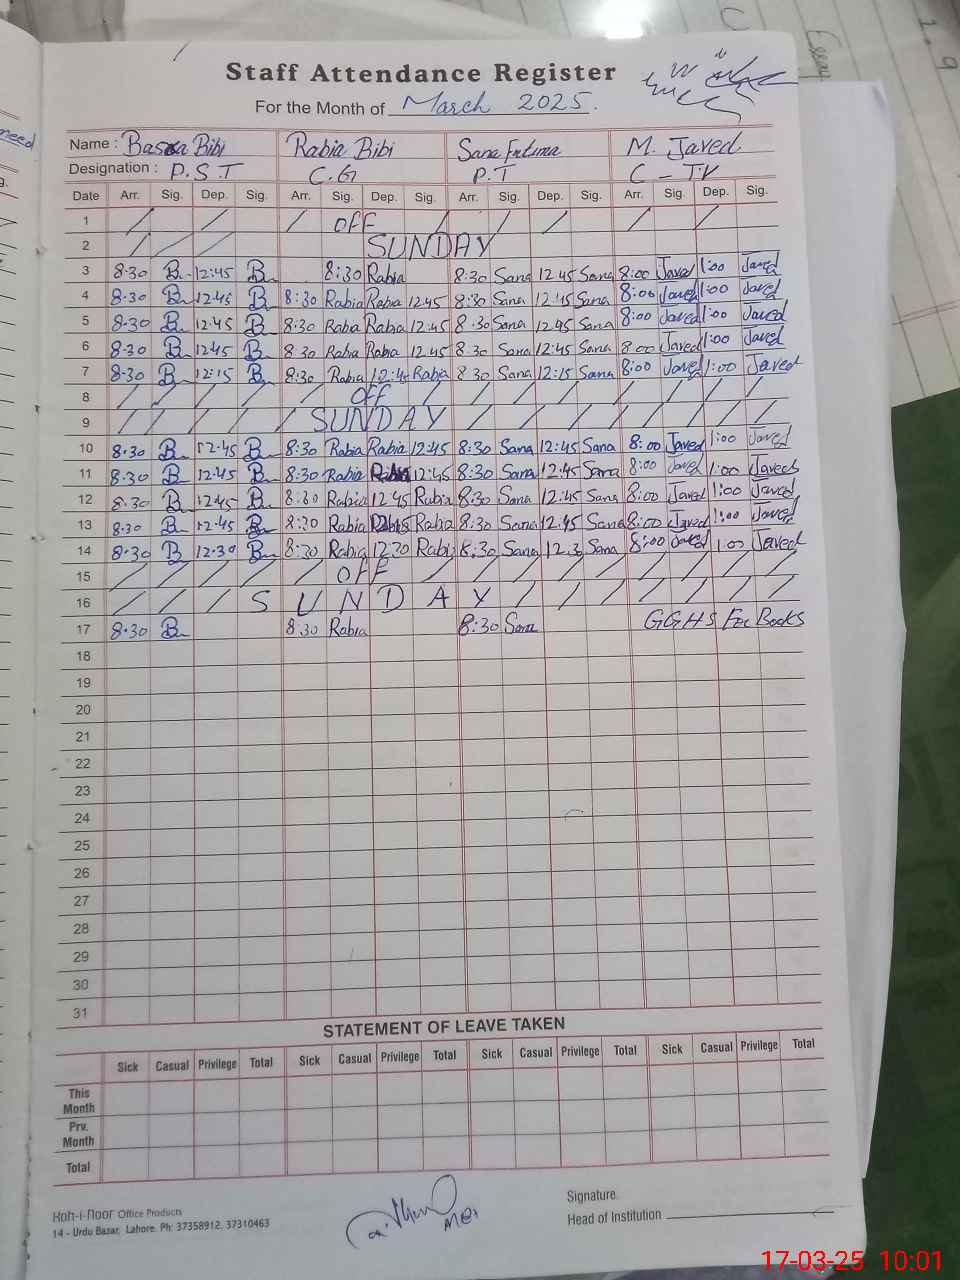 Staff Attendance Register
For the Month of March 2025.
Name : Basra Bibi Rabia Bibi Sana Fatima M. Javed
Designation : P.S.T C.G P.T C - IV
Date Arr. Sig. Dep. Sig. Arr. Sig. Dep. Sig. Arr. Sig. Dep. Sig. Arr. Sig. Dep. Sig.
1 OFF
2 SUNDAY
3 8:30 B 12:45 B 8:30 Rabia 8:30 Sana 12:45 Sana 8:00 Javed 1:00 Javed
4 8:30 B 12:45 B 8:30 Rabia Rabia 12:45 8:30 Sana 12:45 Sana 8:00 Javed 1:00 Javed
5 8:30 B 12:45 B 8:30 Rabia Rabia 12:45 8:30 Sana 12:45 Sana 8:00 Javed 1:00 Javed
6 8:30 B 12:45 B 8:30 Rabia Rabia 12:45 8:30 Sana 12:45 Sana 8:00 Javed 1:00 Javed
7 8:30 B 12:15 B 8:30 Rabia Rabia 8:30 Sana 12:15 Sana 8:00 Javed 1:00 Javed
8 OFF
9 SUNDAY
10 8:30 B 12:45 B 8:30 Rabia Rabia 12:45 8:30 Sana 12:45 Sana 8:00 Javed 1:00 Javed
11 8:30 B 12:45 B 8:30 Rabia 12:45 8:30 Sana 12:45 Sana 8:00 Javed 1:00 Javed
12 8:30 B 12:45 B 8:30 Rabia 12:45 Rabia 8:30 Sana 12:45 Sana 8:00 Javed 1:00 Javed
13 8:30 B 12:45 B 8:30 Rabia Rabia 8:30 Sana 12:45 Sana 8:00 Javed 1:00 Javed
14 8:30 B 12:30 B 8:30 Rabia 12:30 Rabi 8:30 Sana 12:3 Sana 8:00 Javed 1:00 Javed
15 OFF
16 SUNDAY
17 8:30 B 8:30 Rabia 8:30 Sana GGHS For Books
18
19
20
21
22
23
24
25
26
27
28
29
30
31
STATEMENT OF LEAVE TAKEN
Sick Casual Privilege Total Sick Casual Privilege Total Sick Casual Privilege Total Sick Casual Privilege Total
This Month
Prv. Month
Total
Koh-i-noor Office Products
14 - Urdu Bazar, Lahore. Ph: 37358912, 37310463
Signature.
Head of Institution
17-03-25 10:01